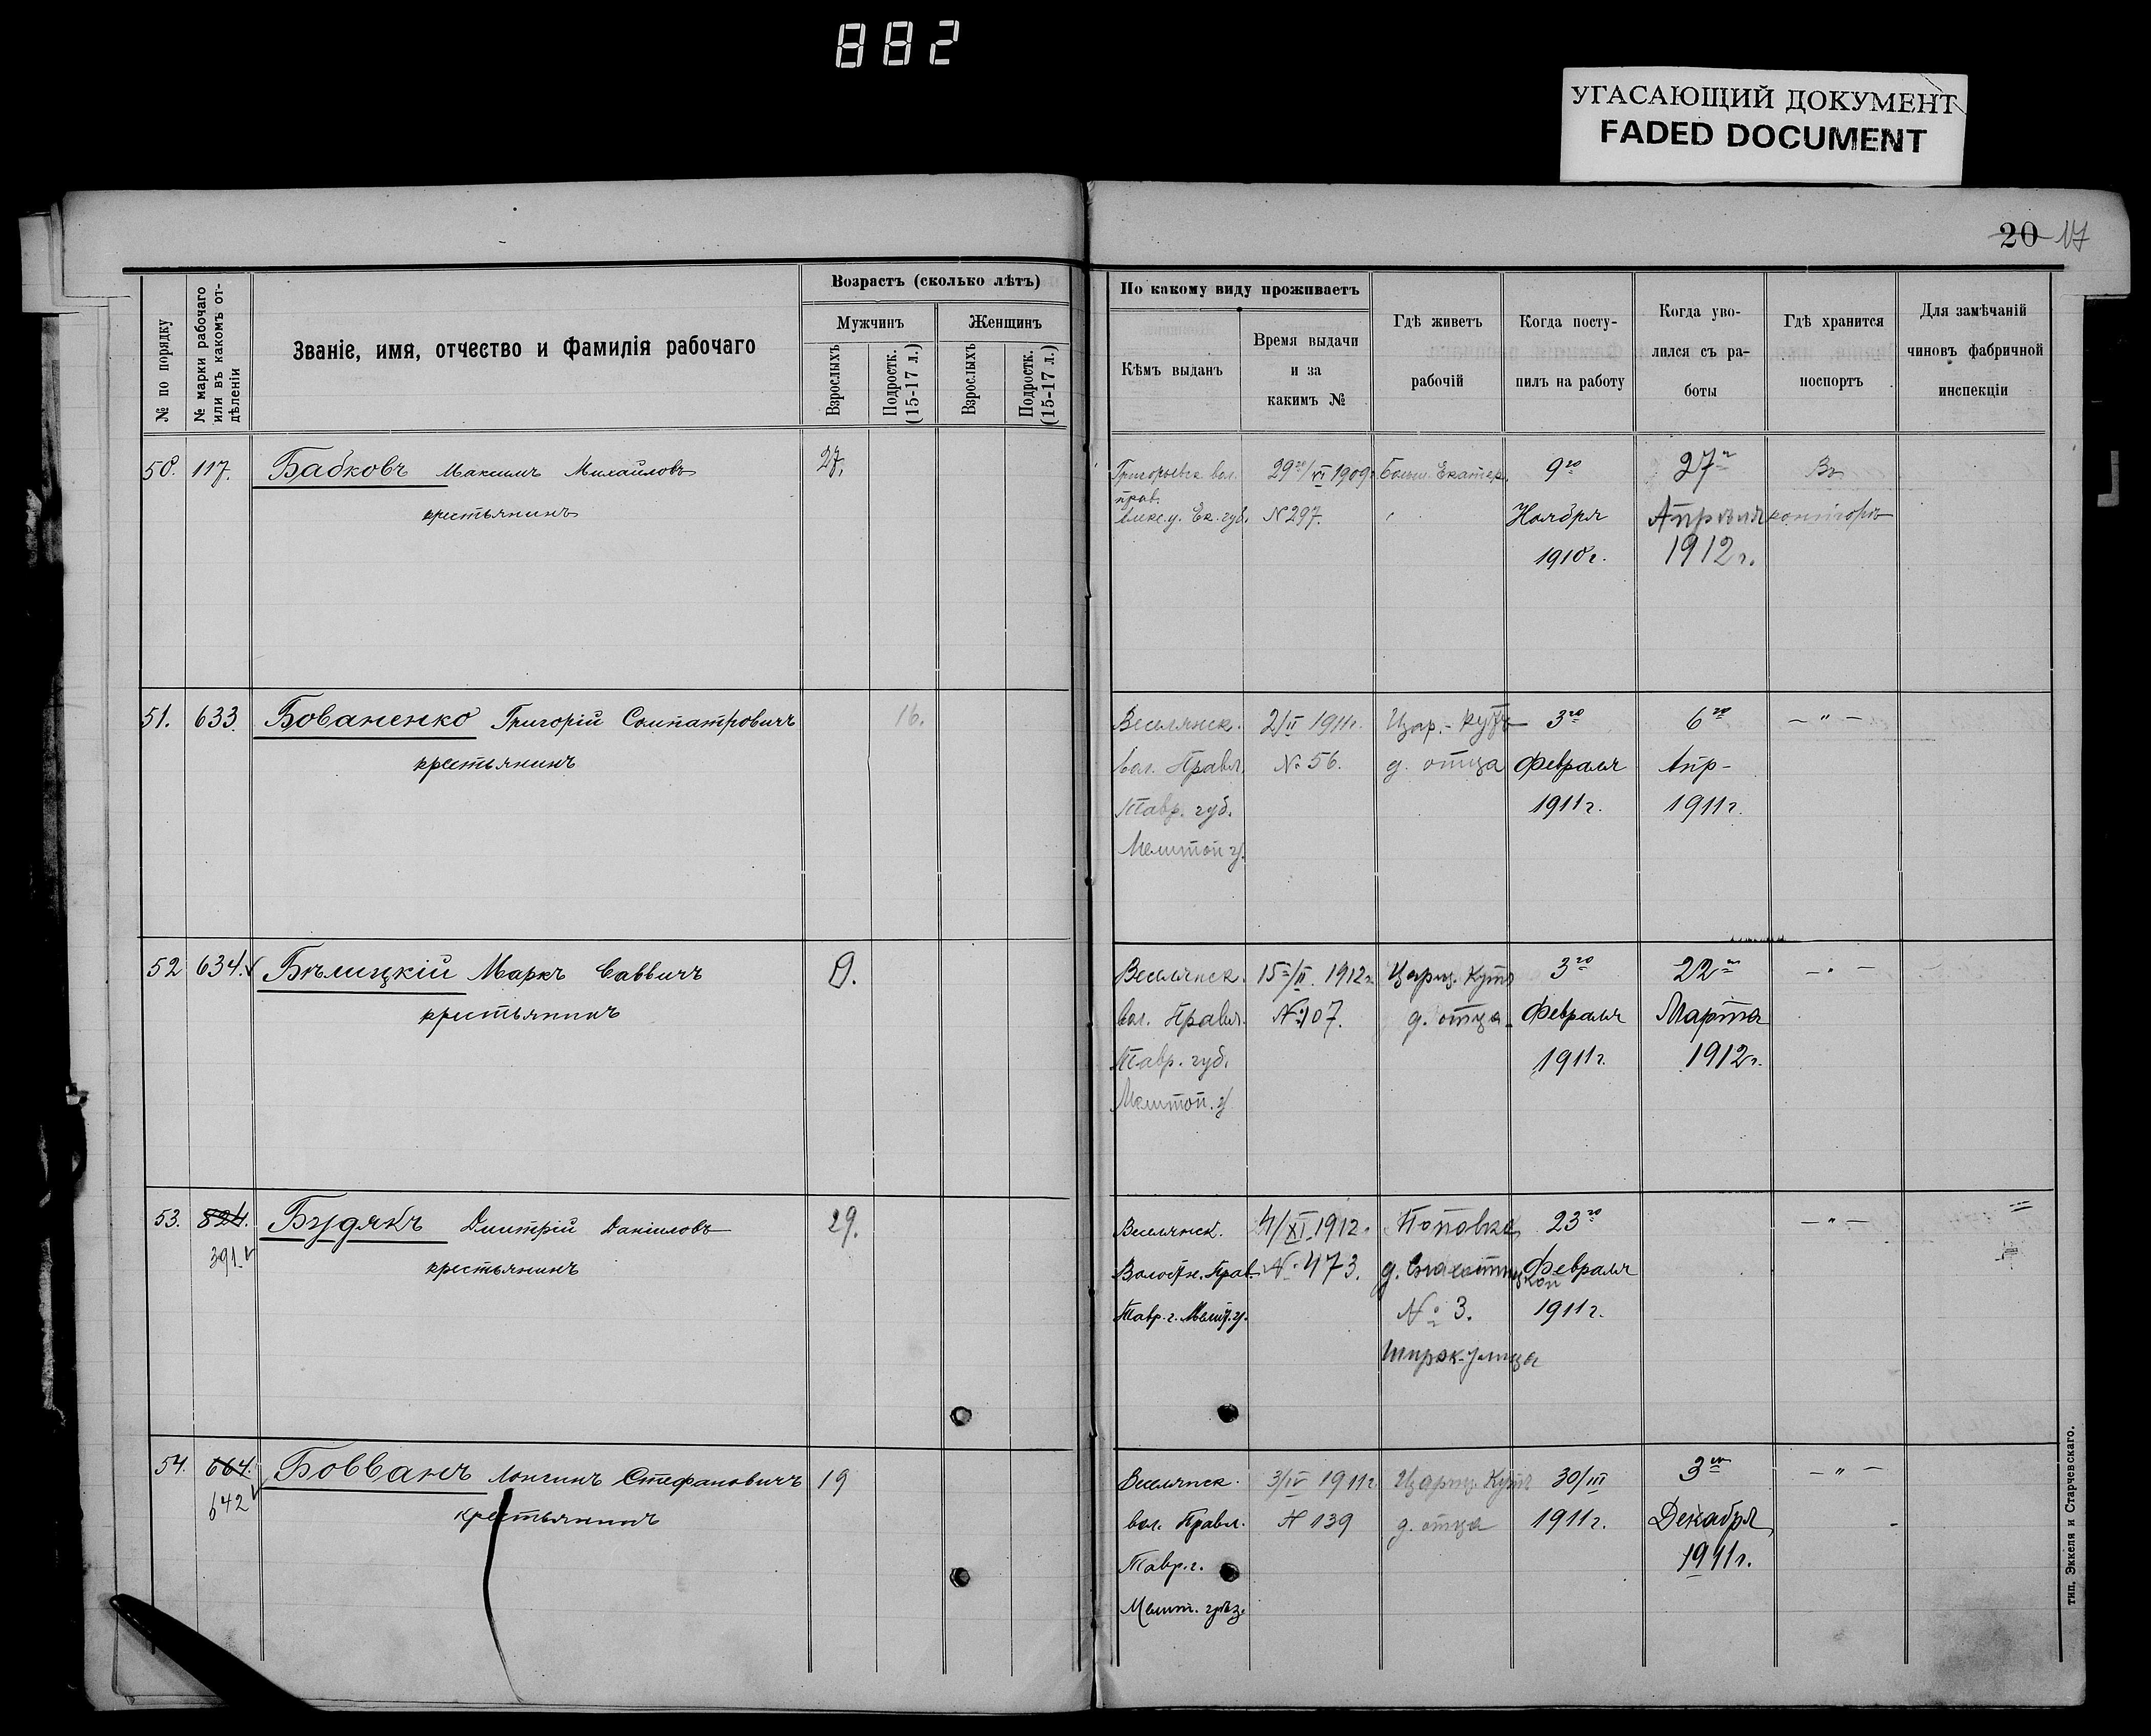 882
УГАСАЮЩИЙ ДОКУМЕНТ
FADED DOCUMENT
20 17
№ по порядку
№ марки рабочаго или въ какомъ отдѣленіи
Званіе, имя, отчество и фамилія рабочаго
Возрастъ (сколько лѣтъ)
Мужчинъ
Женщинъ
Взрослыхъ
Подростк. (15-17 л.)
Взрослыхъ
Подростк. (15-17 л.)
По какому виду проживаетъ
Кѣмъ выданъ
Время выдачи и за какимъ №
Гдѣ живетъ рабочій
Когда поступилъ на работу
Когда уволился съ работы
Гдѣ хранится поспортъ
Для замѣчаній чиновъ фабричной инспекціи
50. 117. Бабковъ Максимъ Михайловъ 27. Григорьевск. вол. 29го/VI 1909г. Больш. Екатер. 9го 27го Въ
прав.
крестьянинъ у. Ек. губ. №297. Ноября Апрѣля конторѣ
1910г. 1912г.
51. 633. Бованенко Григорій Сопатровичъ 16. Веселянск. 2/II 1911г. Цар.-Кутъ 3го 6го — " —
крестьянинъ вол. Правл. № 56. д. отца Февраля Апр-
Тавр. губ. 1911г. 1911г.
Мелитоп у.
52 634. Бѣлицкій Маркъ Саввичъ Веселянск. 15го/II 1912г. Цариц. Кутъ 3го 22го — " —
крестьянинъ вол. Правл. №107. д. отца Февраля Марта
Тавр. губ. 1911г. 1912г.
Мелитоп. у.
53. 824. Будякъ Дмитрій Даніиловъ 29. Веселянск. 4/XI 1912г. Поповка 23го — " —
391 крестьянинъ Волостн. Прав. №473. д. Февраля
Тавр. г. Мелит. у. № 3. 1911г.
Широк. улица
54. 664. Бовванъ Лонгинъ Стефановичъ 19 Веселянск. 3/IV 1911г. Цариц. Кутъ 30/III 3го — " —
642 крестьянинъ вол. Правл. № 139 д. отца 1911г. Декабря
Тавр. г. 1911г.
Мелит. уѣз.
тип. Эккеля и Старчевскаго.